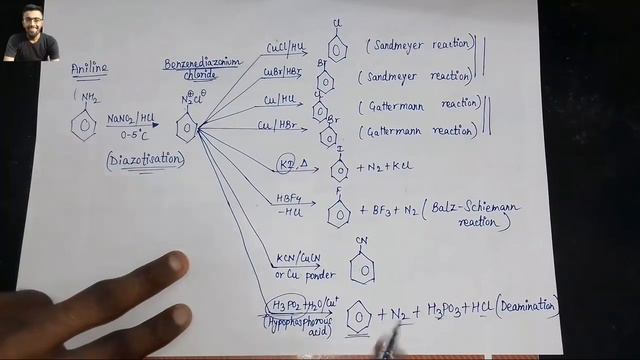 Aniline
NH2
NaNO2/HCl
0-5°C
(Diazotisation)
Benzenediazonium
chloride
N2⊕Cl⊖
CuCl/HCl
Cl
(Sandmeyer reaction)
CuBr/HBr
Br
(Sandmeyer reaction)
Cu/HCl
Cl
(Gattermann reaction)
Cu/HBr
Br
(Gattermann reaction)
KI, Δ
I
+ N2 + KCl
HBF4
-HCl
F
+ BF3 + N2 (Balz-Schiemann
reaction)
KCN/CuCN
or Cu powder
CN
H3PO2+H2O/Cu+
(Hypophosphorous
acid)
+ N2 + H3PO3 + HCl (Deamination)